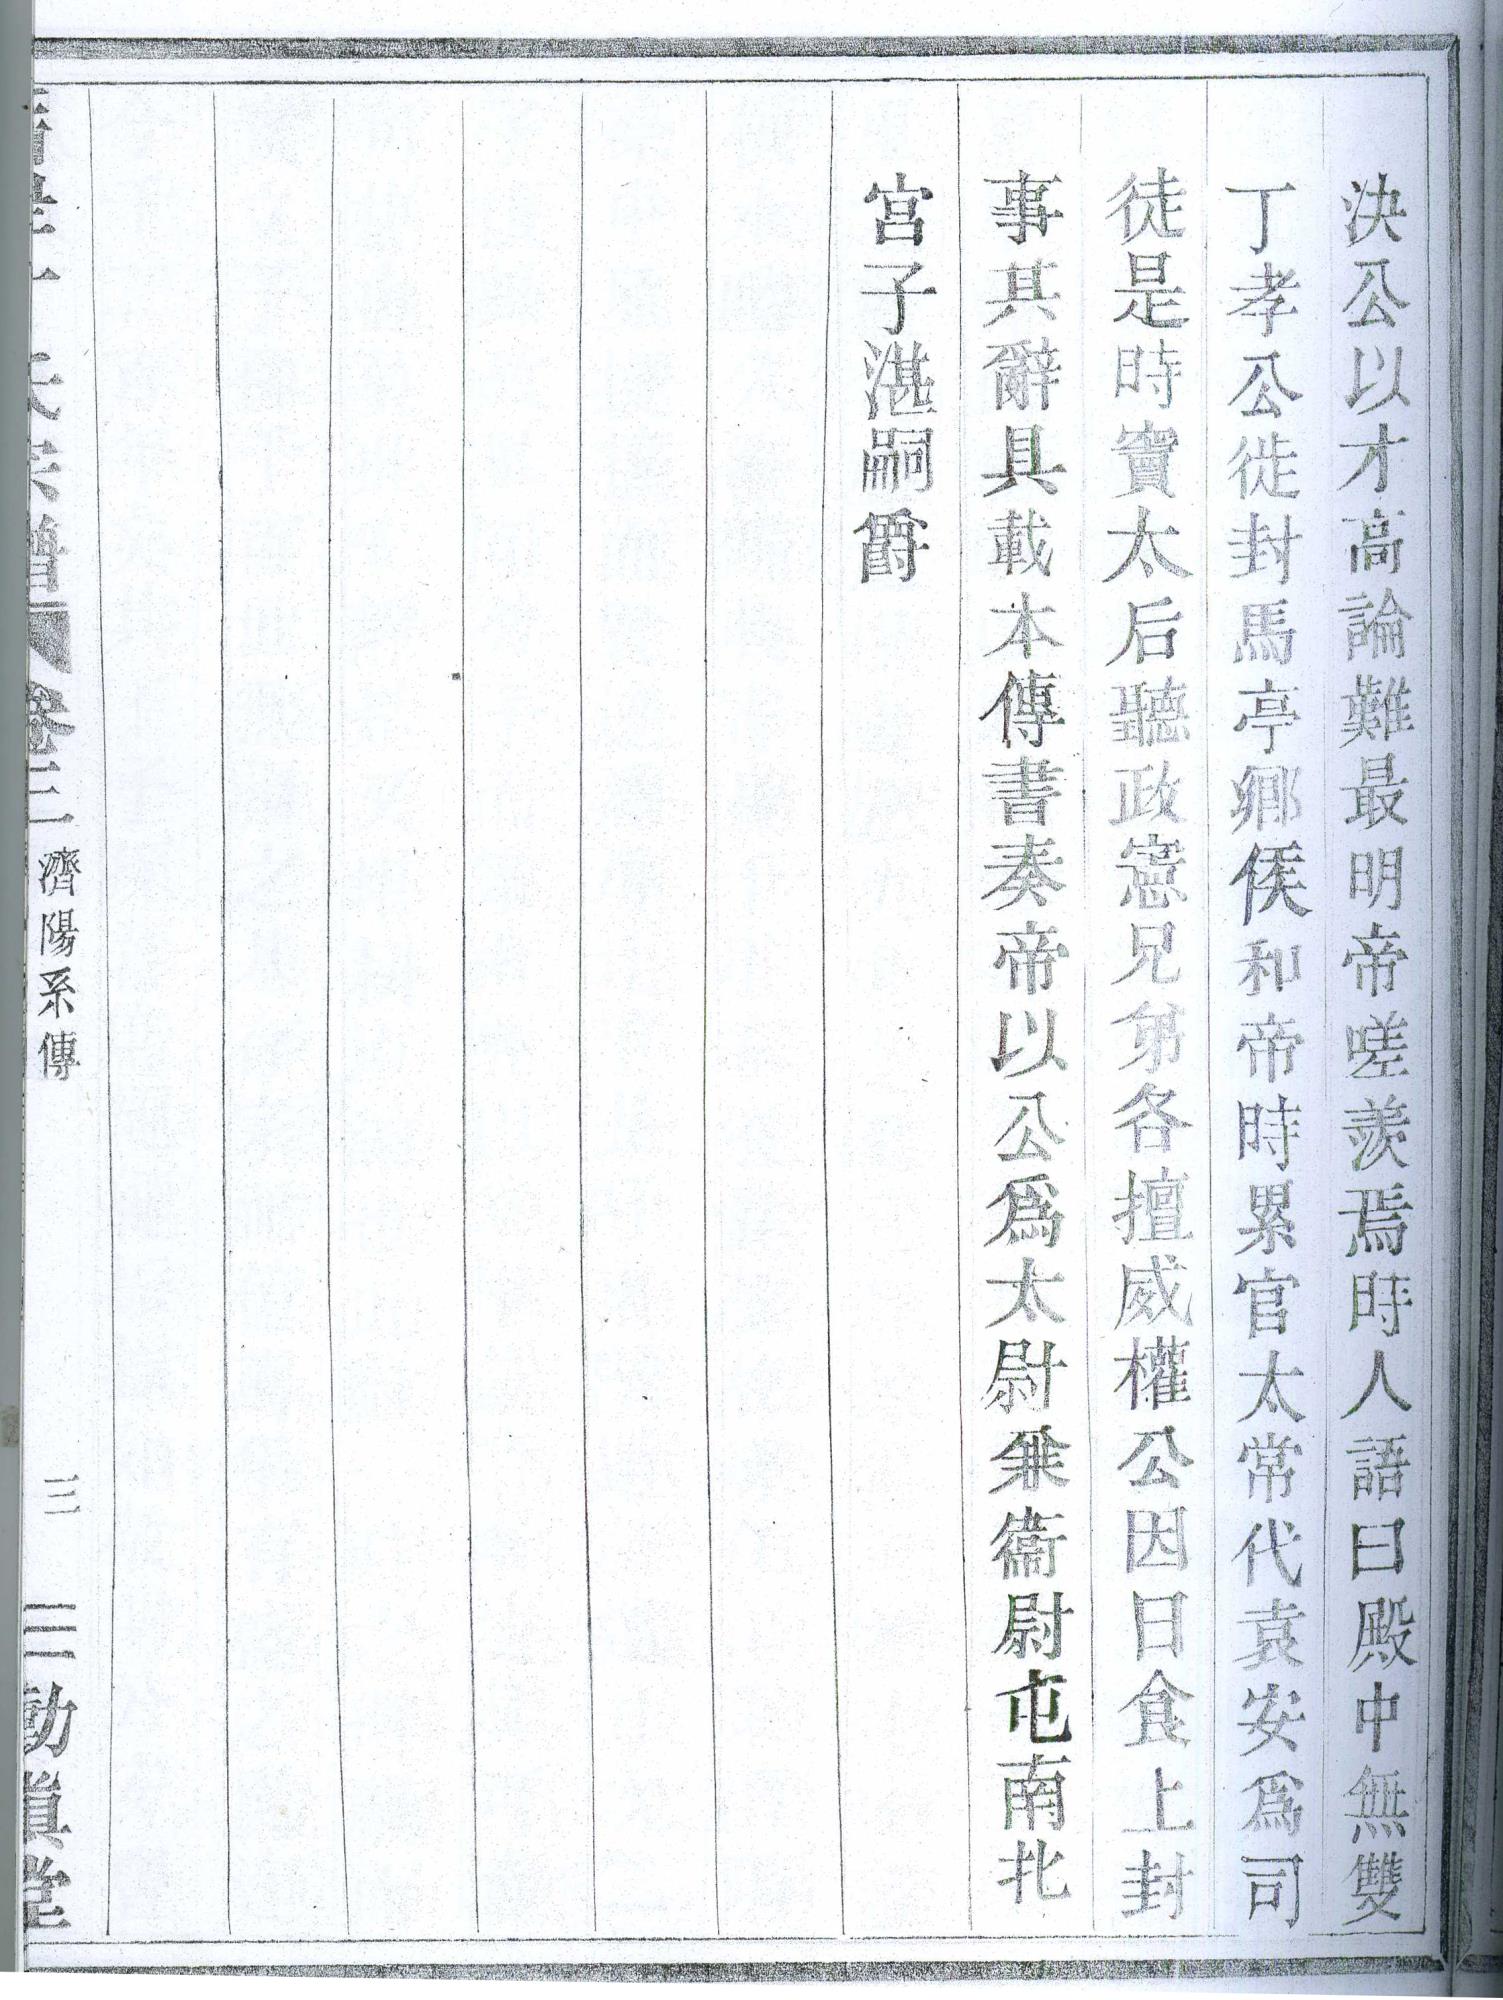 決公以才高論難最明帝嗟羨焉時人語曰殿中無雙
丁孝公徙封馬亭鄉侯和帝時累官太常代袁安爲司
徒是時竇太后聽政憲兄弟各擅威權公因日食上封
事其辭具載本傳書奏帝以公爲太尉兼衞尉屯南北
宮子湛嗣爵
氏宗譜 卷三 濟陽系傳 三